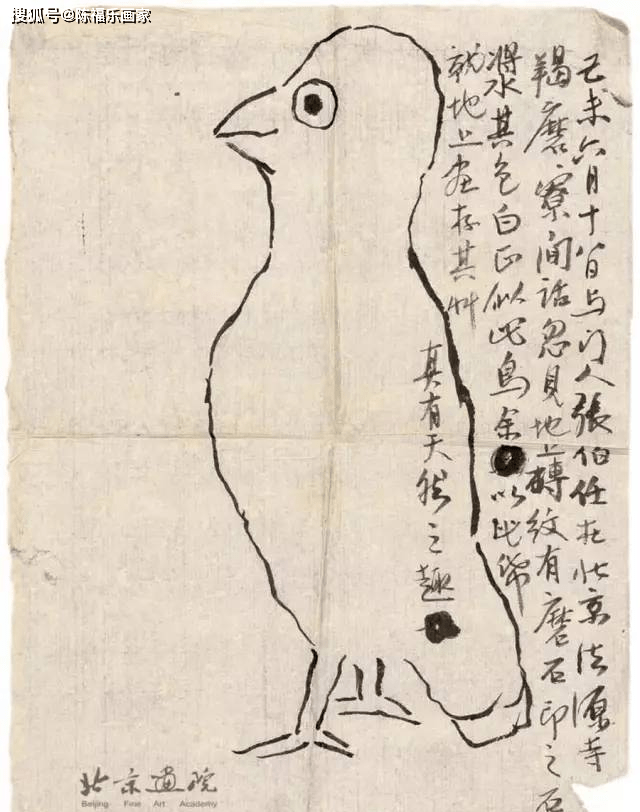 搜狐号@陈福乐画家
己未六月十八日与门人張伯任在北京法源寺
羯磨寮閒話忽見地上磚紋有磨石印之石
漿其色白正似此鳥余以此帋
就地上畫存其艸
真有天然之趣
北京畫院
Beijing Fine Art Academy